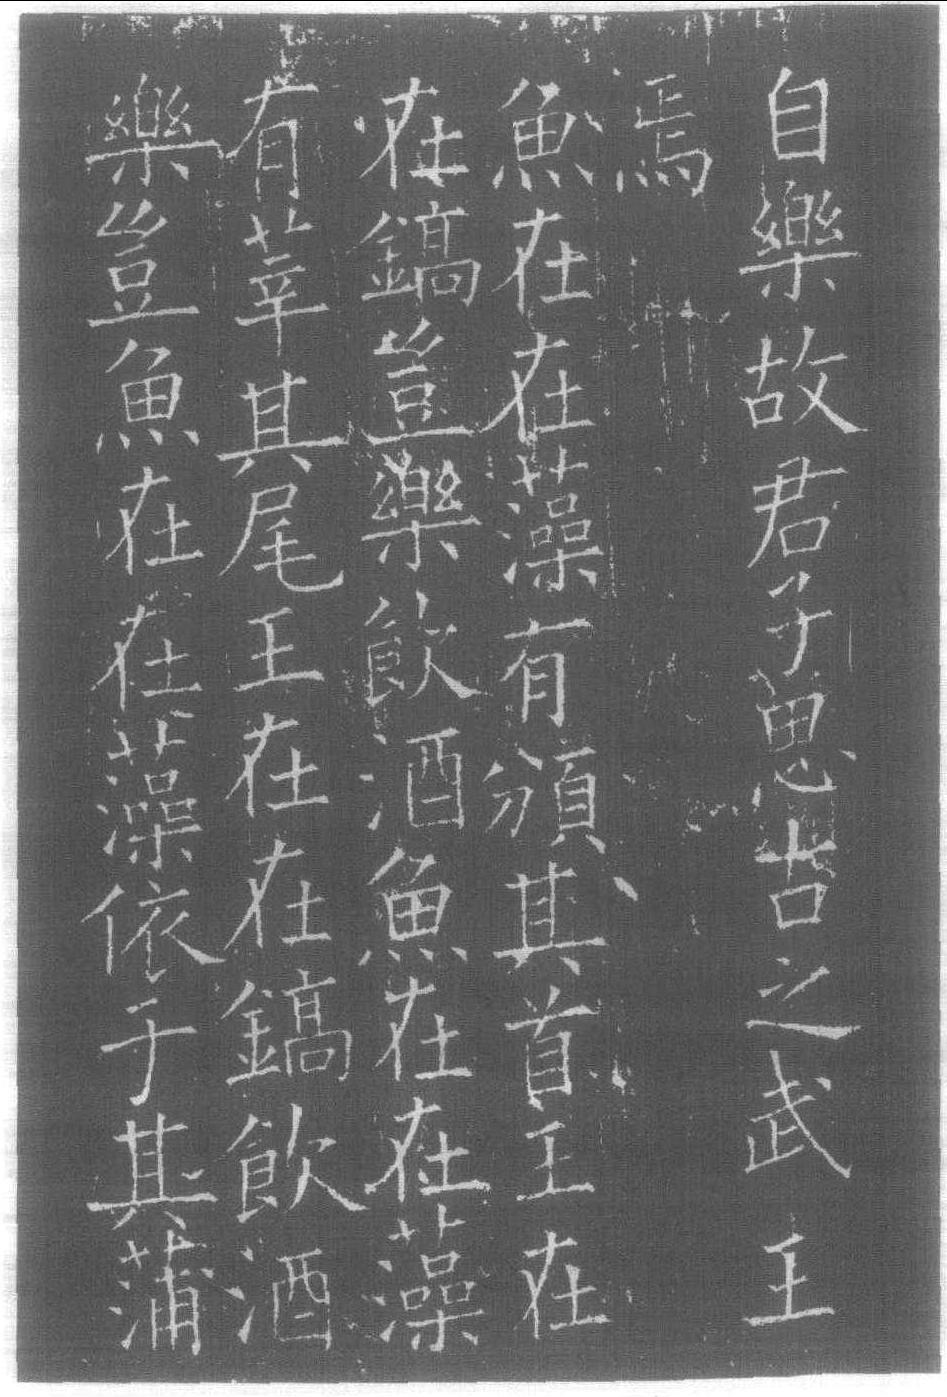 自樂故君子思古之武王
焉
魚在在藻有頒其首王在
在鎬豈樂飲酒魚在在藻
有莘其尾王在在鎬飲酒
樂豈魚在在藻依于其蒲